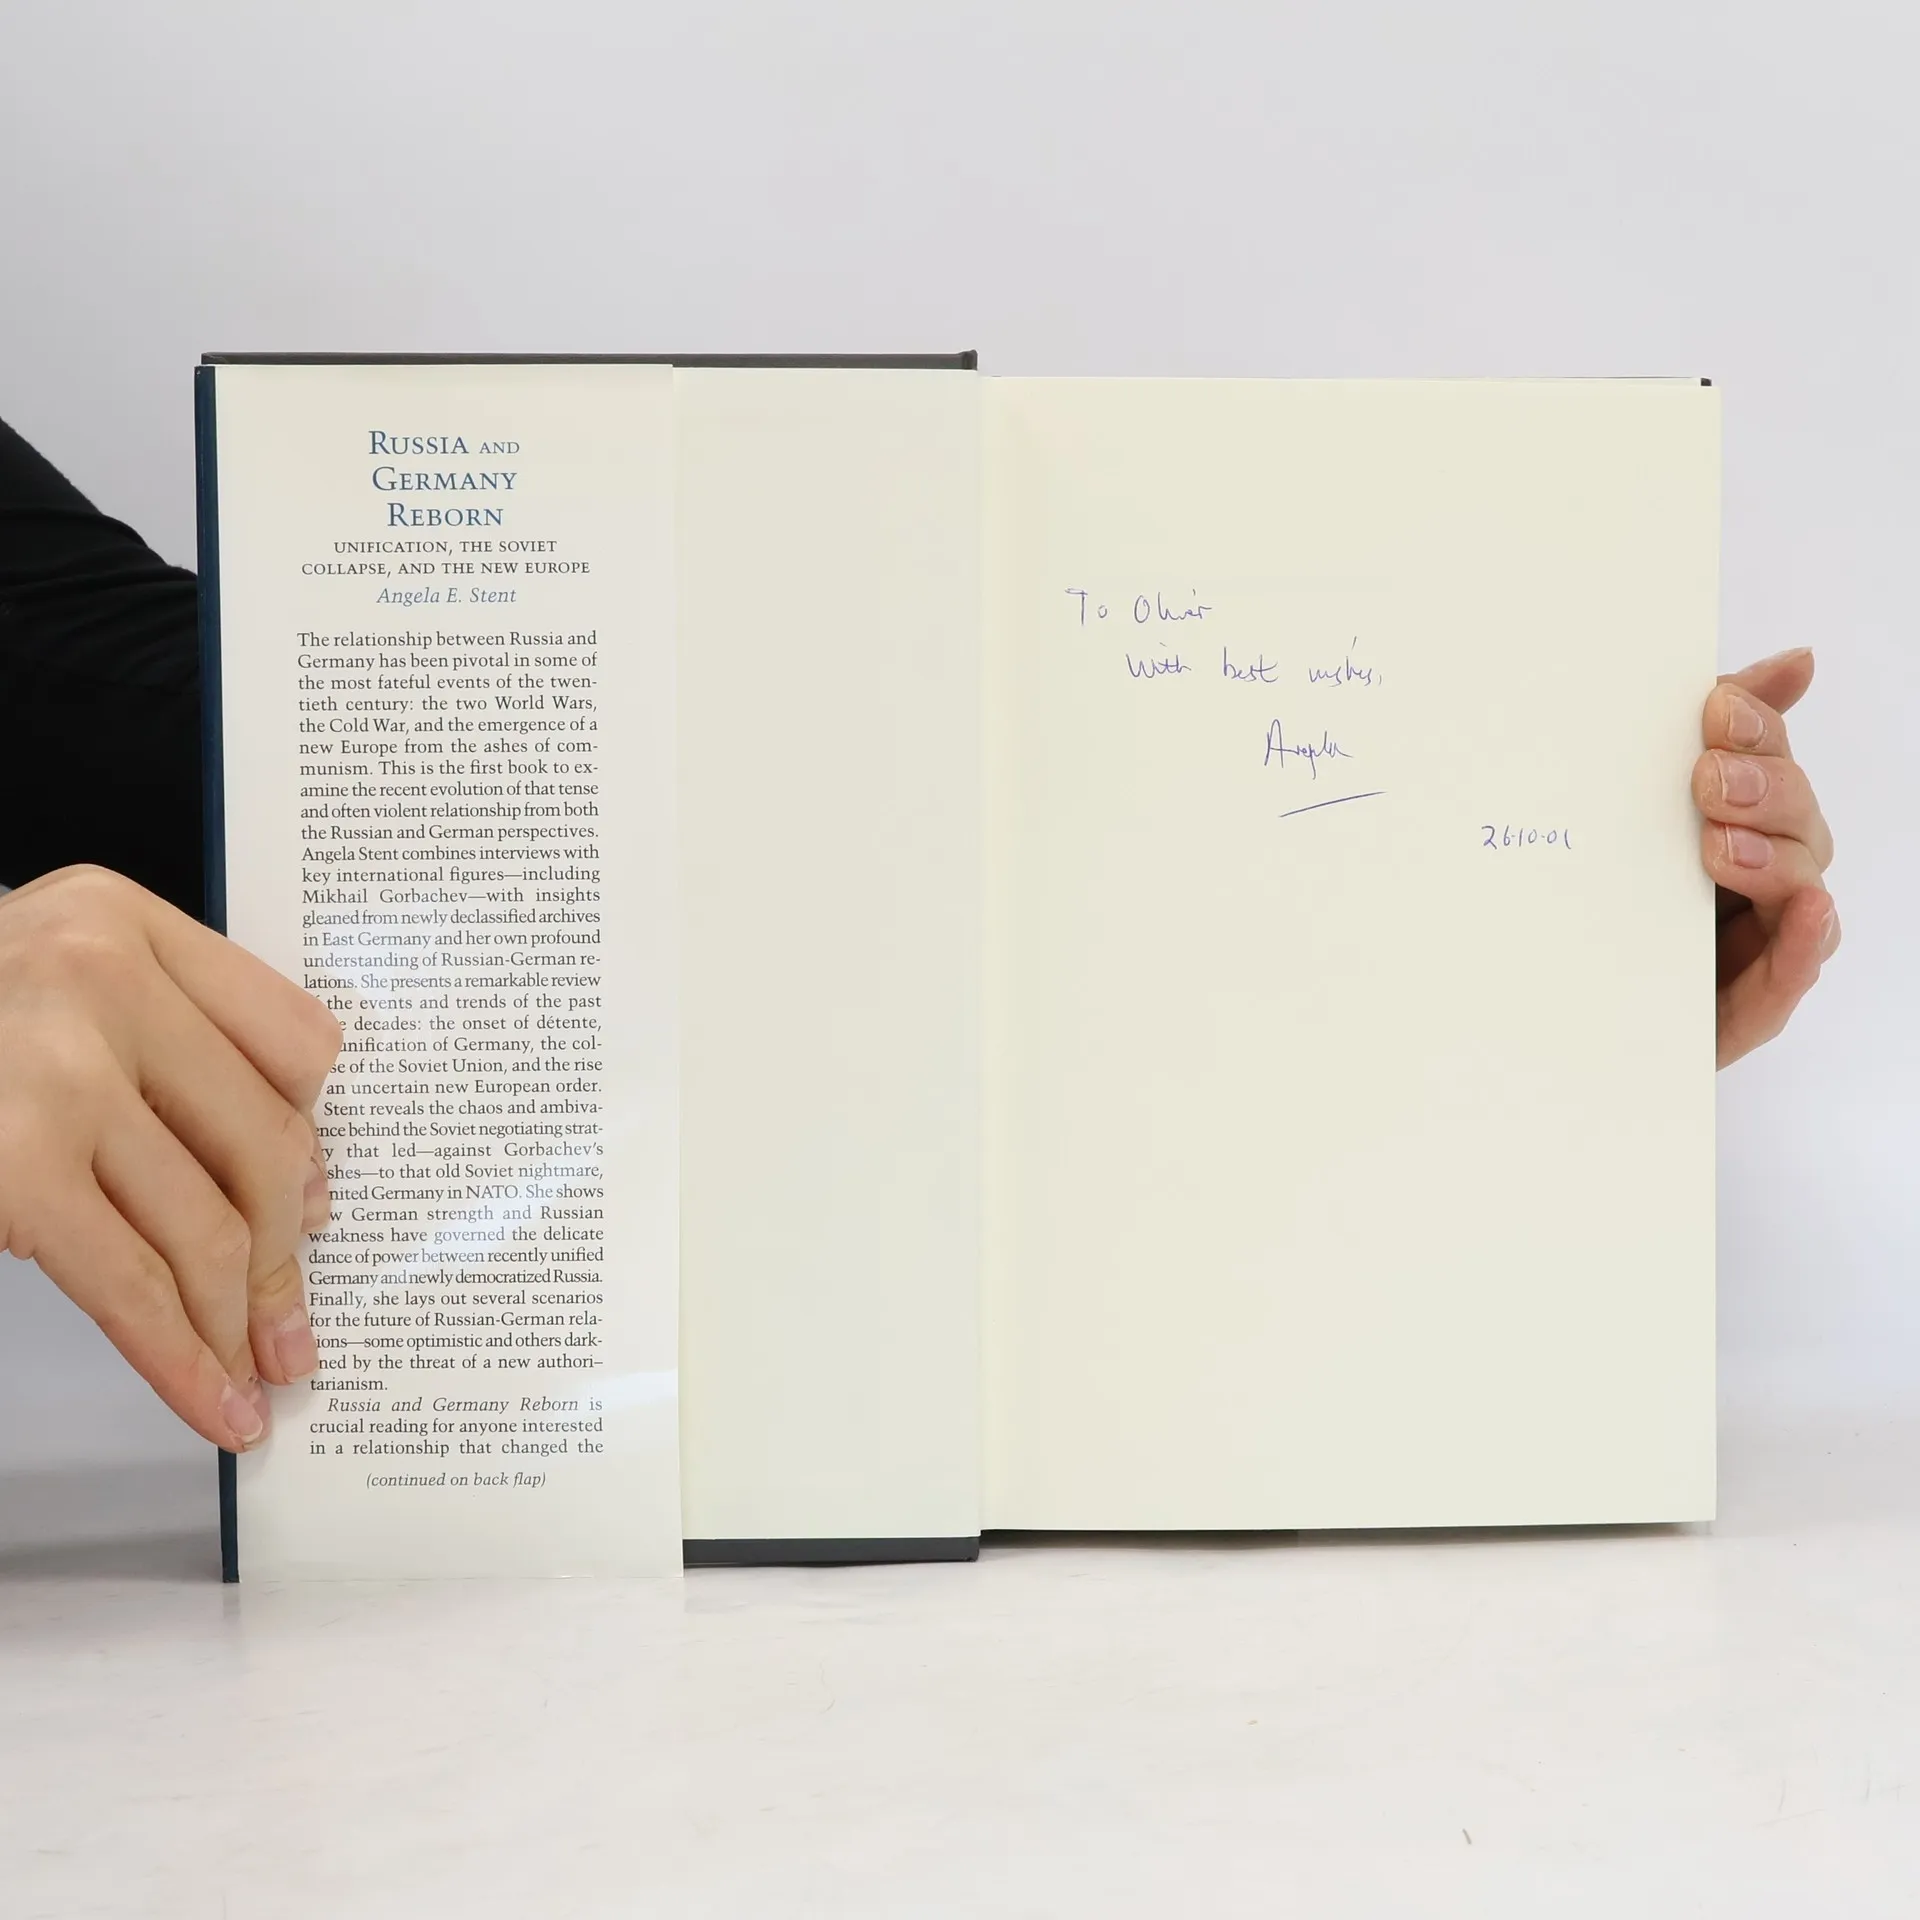 RUSSIA AND
GERMANY
REBORN
UNIFICATION, THE SOVIET
COLLAPSE, AND THE NEW EUROPE
Angela E. Stent
The relationship between Russia and
Germany has been pivotal in some of
the most fateful events of the twen-
tieth century: the two World Wars,
the Cold War, and the emergence of a
new Europe from the ashes of com-
munism. This is the first book to ex-
amine the recent evolution of that tense
and often violent relationship from both
the Russian and German perspectives.
Angela Stent combines interviews with
key international figures—including
Mikhail Gorbachev—with insights
gleaned from newly declassified archives
in East Germany and her own profound
understanding of Russian-German re-
lations. She presents a remarkable review
the events and trends of the past
decades: the onset of détente,
unification of Germany, the col-
se of the Soviet Union, and the rise
an uncertain new European order.
Stent reveals the chaos and ambiva-
ence behind the Soviet negotiating strat-
y that led—against Gorbachev's
shes—to that old Soviet nightmare,
nited Germany in NATO. She shows
w German strength and Russian
weakness have governed the delicate
dance of power between recently unified
Germany and newly democratized Russia.
Finally, she lays out several scenarios
for the future of Russian-German rela-
ions—some optimistic and others dark-
ned by the threat of a new authori-
tarianism.
Russia and Germany Reborn is
crucial reading for anyone interested
in a relationship that changed the
(continued on back flap)
To Oliver
With best wishes,
Angela
26-10-01